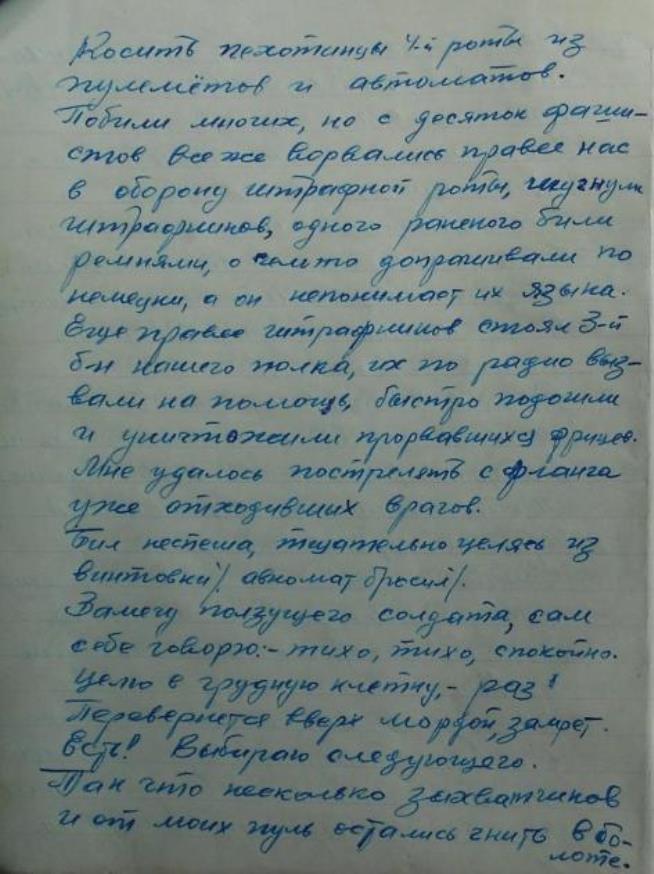 Косить пехотинцы 4-й роты из
пулемётов и автоматов.
Побили многих, но с десяток фаши-
стов все же ворвались правее нас
в оборону штрафной роты, шугнули
штрафников, одного раненого били
ремнями, о чем то допрашивали по
немецки, а он непонимает их языка.
Еще правее штрафников стоял 3-й
б-н нашего полка, их по радио выз-
вали на помощь, быстро подошли
и уничтожили прорвавшихся фрицев.
Мне удалось пострелять с фланга
уже отходивших врагов.
Бил неспеша, тщательно целясь из
винтовки /. автомат бросил /.
Замечу ползущего солдата, сам
себе говорю:- тихо, тихо, спокойно.
Целю в грудную клетку,- раз!
Перевернется вверх мордой, замрет.
Есть! Выбираю следующего.
Так что несколько захватчиков
и от моих пуль остались гнить в бо-
лоте.